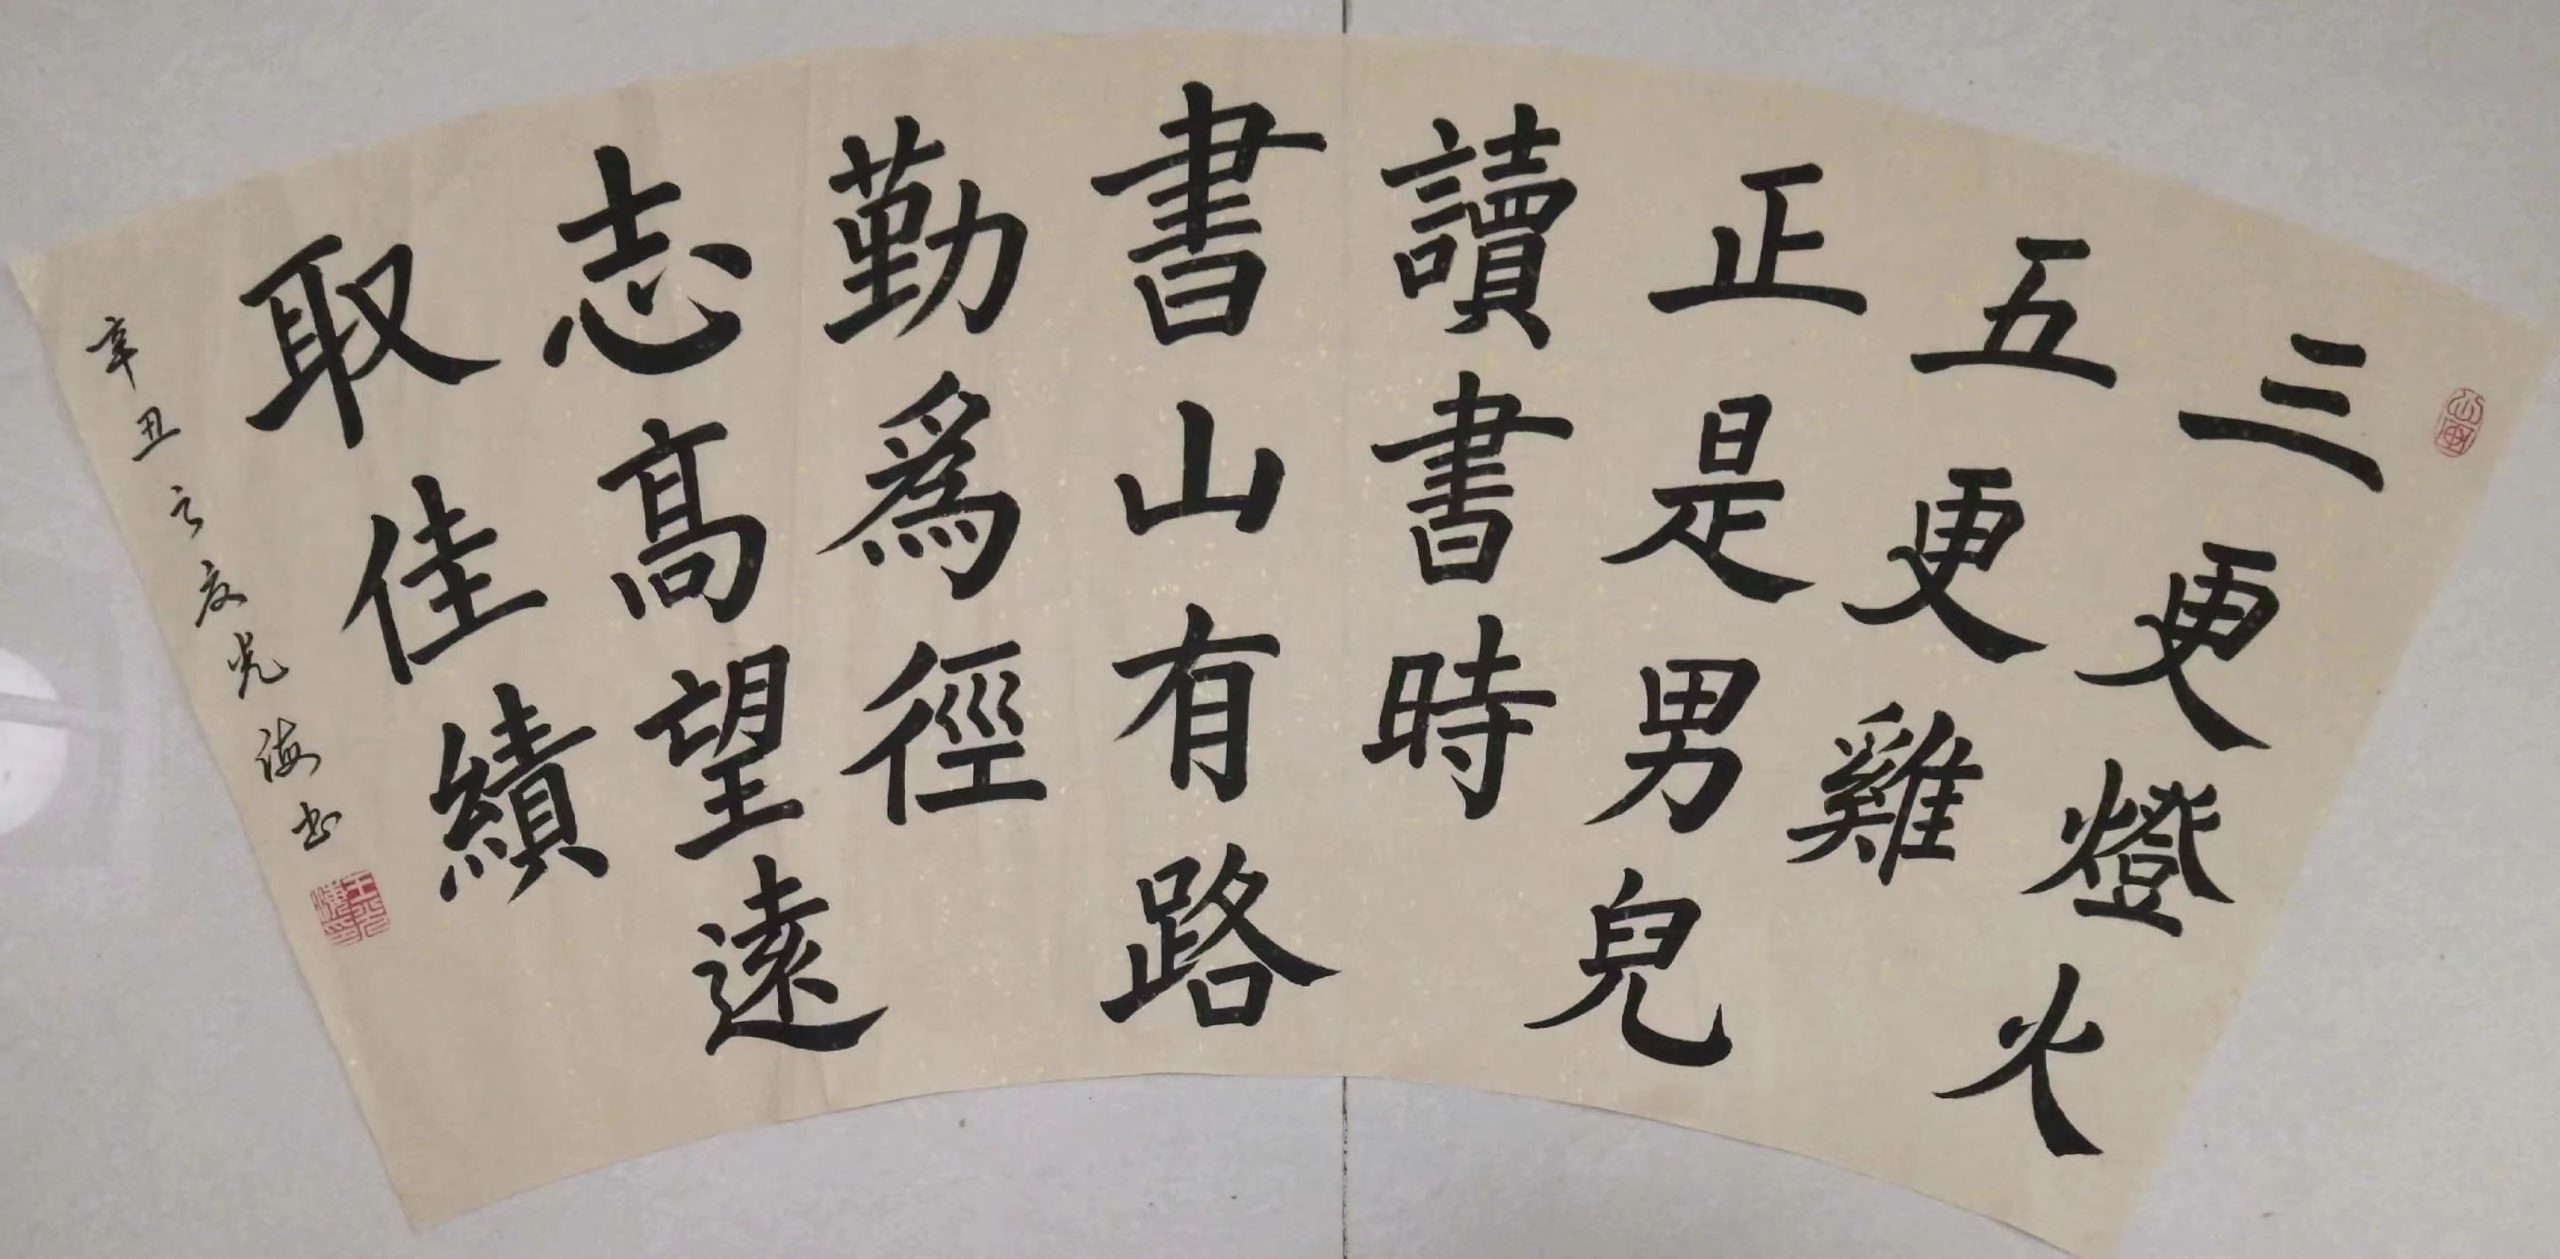 三更燈火
五更雞
正是男兒
讀書時
書山有路
勤爲徑
志高望遠
取佳績
辛丑之夏光海书